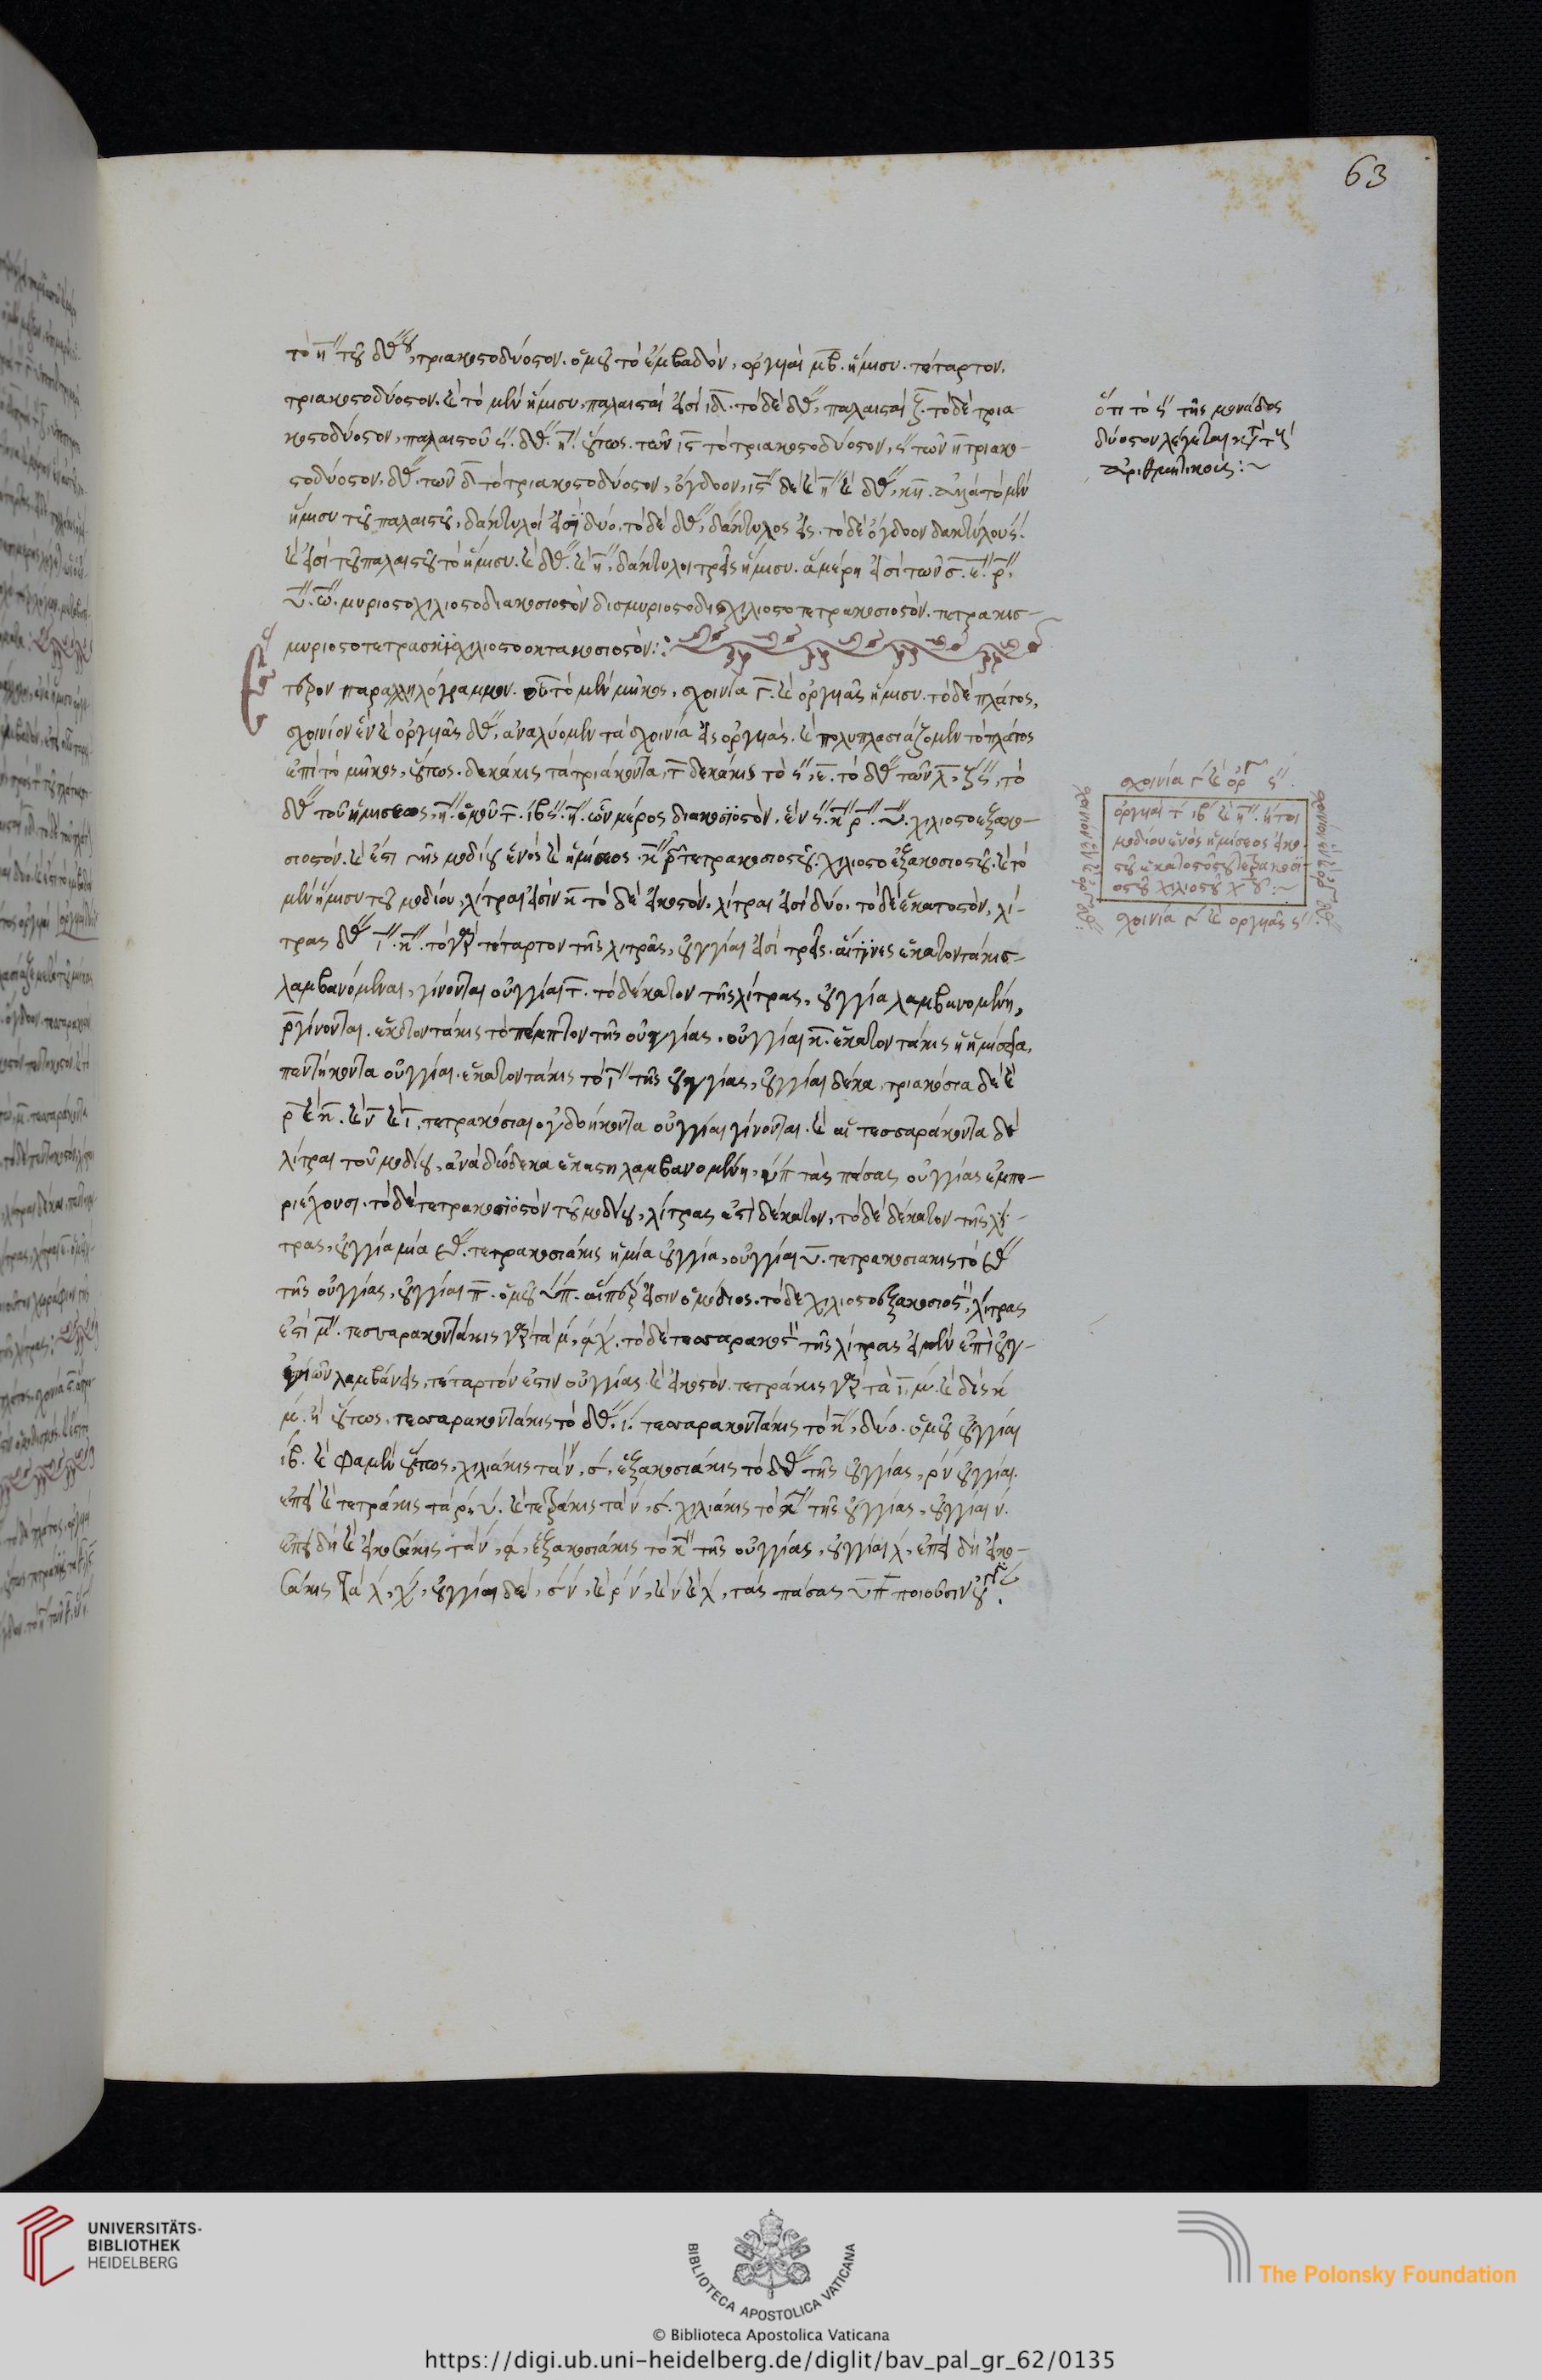 63
τὸ η′′ τοῦ δ′′ου, τριακοστοδύοστον. ὁμοῦ τὸ ἐμβαδὸν, ὀργυιαὶ μβ. ἥμισυ. τέταρτον.
τριακοστοδύοστον. καὶ τὸ μὲν ἥμισυ, παλαισταί εἰσι ιδ. τὸ δὲ δ′′, παλαισταὶ ζ. τὸ δὲ τρια-
κοστοδύοστον, παλαιστοῦ ς′′. δ′′. η′′. οὕτως. τῶν ις τὸ τριακοστοδύοστον, ς′′ τῶν η τριακο-
στοδύοστον, δ′′. τῶν δ τὸ τριακοστοδύοστον, ὄγδοον, δὲ καὶ η′′ καὶ δ′′, κη. ἀλλὰ τὸ μὲν
ἥμισυ τοῦ παλαιστοῦ, δάκτυλοί εἰσι δύο. τὸ δὲ δ′′, δάκτυλος εἷς. τὸ δὲ ὄγδοον δακτύλου ς′′.
καὶ εἰσὶ τοῦ παλαιστοῦ τὸ ἥμισυ. καὶ δ′′. καὶ η′′, δάκτυλοι τρεῖς ἥμισυ. ἃ μέρη εἰσὶ τῶν σ. κ′′. ρ′′.
υ′′. ω′′. μυριοστοχιλιοστοδιακοσιοστὸν δισμυριοστοδισχιλιοστοτετρακοσιοστὸν. τετρακισ-
μυριοστοτετρακισχιλιοστοοκτακοσιοστὸν:
τερον παραλληλόγραμμον. οὗ τὸ μὲν μῆκος, σχοινία γ. καὶ ὀργυιᾶς ἥμισυ. τὸ δὲ πλάτος,
σχοινίον ἓν καὶ ὀργυιᾶς δ′′, ἀναλύομεν τὰ σχοινία εἰς ὀργυιάς. καὶ πολυπλασιάζομεν τὸ πλάτος
ἐπὶ τὸ μῆκος, οὕτως. δεκάκις τὰ τριάκοντα, τ δεκάκις τὸ ς′′, ε. τὸ δ′′ τῶν λ, ζ ς′′, τὸ
δ′′ τοῦ ἡμίσεως, η′′. ὁμοῦ τ. ιβ ς′′. η′′. ὧν μέρος διακοσιοστὸν, ἓν ς′′. κ′′ ρ′′. υ′′. χιλιοστοεξακο-
σιοστόν. καὶ ἔστι γῆς μοδίου ἑνὸς καὶ ἡμίσεος κ′′ ρ′′ τετρακοσιοστοῦ. χιλιοστοεξακοσιοστοῦ. καὶ τὸ
μὲν ἥμισυ τοῦ μοδίου, λίτραι εἰσὶν κ τὸ δὲ εἰκοστὸν, λίτραι εἰσὶ δύο. τὸ δὲ ἑκατοστὸν, λί-
τρας δ′′ ι′′. κ′′. τὸ γὰρ τέταρτον τῆς λιτρᾶς, οὐγγίαι εἰσὶ τρεῖς. αἵτινες ἑκατοντάκισ-
λαμβανόμεναι, γίνονται οὐγγίαι τ. τὸ δέκατον τῆς λίτρας, οὐγγία λαμβανομένη,
ρ γίνονται. ἑκατοντάκις τὸ πέμπτον τῆς οὐγγίας, οὐγγίαι κ. ἑκατοντάκις ἡ ἡμίσεια,
πεντήκοντα οὐγγίαι. ἑκατοντάκις τὸ ι′′ τῆς οὐγγίας, οὐγγίαι δέκα, τριακόσια δὲ καὶ
ρ καὶ κ. καὶ ν καὶ ι, τετρακόσιαι ογδοήκοντα οὐγγίαι γίνονται. καὶ αἱ τεσσαράκοντα δὲ
λίτραι τοῦ μοδίου, ἀνὰ δώδεκα ἑκάστη λαμβανομένη, υπ τὰς πάσας οὐγγίας ἐμπε-
ριέχουσι. τὸ δὲ τετρακοσιοστὸν τοῦ μοδίου, λίτρας ἐστὶ δέκατον, τὸ δὲ δέκατον τῆς λί-
τρας, οὐγγία μία ε′′. τετρακοσιάκις ἡ μία οὐγγία, οὐγγίαι υ. τετρακοσιακις τὸ ε′′
τῆς οὐγγίας, οὐγγίαι π. ὁμοῦ υπ. εἰσιν ὁ μόδιος. τὸ δὲ χιλιοστοεξακοσιοστ, λίτρας
ἐστὶ μ′′. τεσσαρακοντάκις γὰρ τὰ μ, ͵αχ. τὸ δὲ τεσσαρακοστ τῆς λίτρας εἰ μὲν ἐπὶ οὐγ-
γιῶν λαμβάνεις, τέταρτόν ἐστιν οὐγγίας καὶ εἰκοστόν. τετράκις γὰρ τὰ ι, μ. καὶ δὶς κ
μ. ἢ οὕτως. τεσσαρακοντάκις τὸ δ′′. ι. τεσσαρακοντάκις τὸ κ′′, δύο. ὁμοῦ οὐγγίαι
ιβ. καὶ φαμὲν οὕτως, χιλιάκις τὰ, σν, ἑξακοσιάκις τὸ δ′′ τῆς οὐγγίας, ρν οὐγγίαι.
ἐπεὶ καὶ τετράκις τὰ ρ, υ. καὶ τετράκις τὰ ν, σ. χιλιάκις τὸ κ′′ τῆς οὐγγίας, οὐγγίαι ν.
ἐπειδὴ καὶ εἰκοσάκις τὰ ν, ͵α, ἑξακοσιάκις τὸ κ′′ τῆς οὐγγίας, οὐγγίαι λ, ἐπειδὴ εἰκο-
σάκις τὰ λ, χ, οὐγγίαι δὲ, σν, καὶ ρν, καὶ ν καὶ λ, τὰς πάσας υπ ποιοῦσιν
ὅτι τὸ ς′′ τῆς μονάδος
δύοστον λέγεται
ἀριθμητικοῖς:~
σχοινία γ καὶ ὀργ ς′′.
ὀργυιαὶ τ ιβ καὶ η′′. ἤτοι
μοδίου ἑνὸς ἡμίσεος εἰκο-
στοῦ ἑκατοστοῦ τετρακοσι-
οστοῦ χιλιοστοῦ χου:~
σχοινία γ καὶ οργυιᾶς ς′′
UNIVERSITÄTS-
BIBLIOTHEK
HEIDELBERG
BIBLIOTECA APOSTOLICA VATICANA
The Polonsky Foundation
© Biblioteca Apostolica Vaticana
https://digi.ub.uni-heidelberg.de/diglit/bav_pal_gr_62/0135